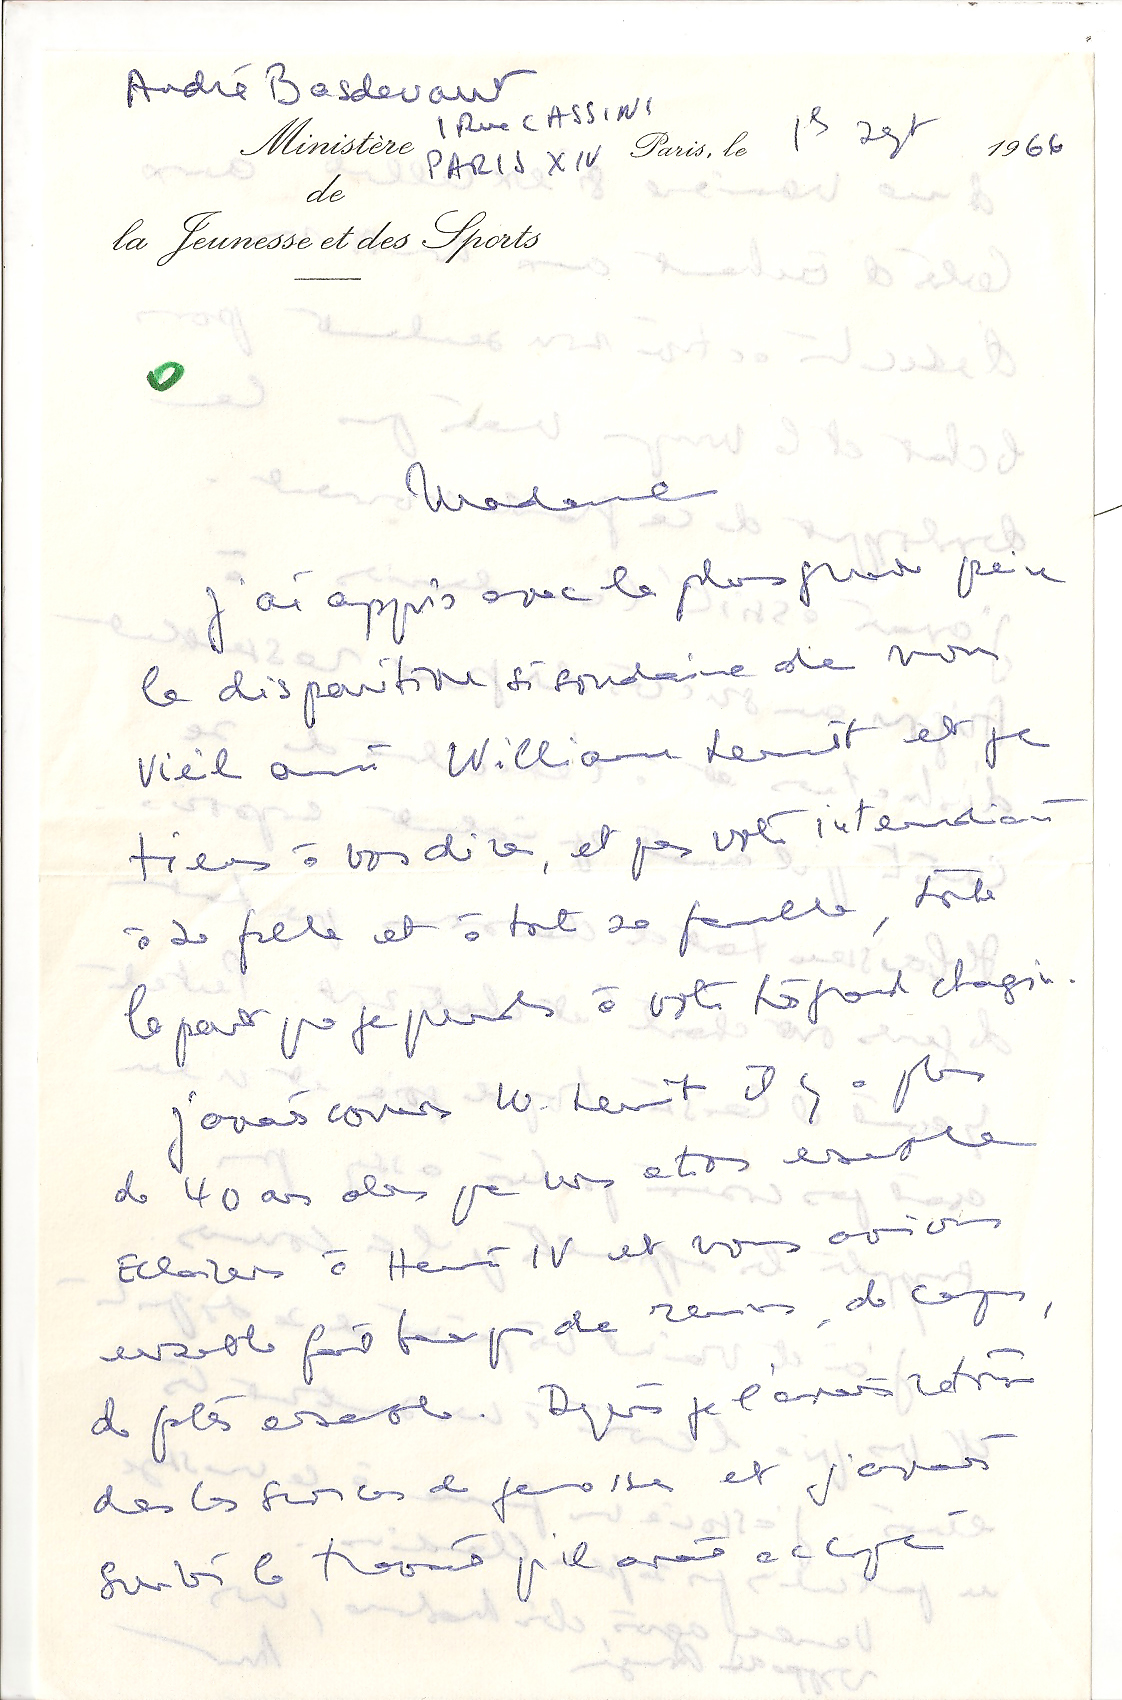 André Basdevant
1 Rue CASSINI
Ministère PARIS XIV Paris, le 1er sept 1966
de
la Jeunesse et des Sports
Madame
j'ai appris avec la plus grande peine
la disparition si soudaine de mon
vieil ami William Lemit et je
tiens à vous dire, et par votre intermédiaire
à sa fille et à toute sa famille, toute
la part que je prends à votre très grand chagrin.
j'avais connu W. Lemit il y a plus
de 40 ans alors que nous étions ensemble
Eclaireurs à Henri IV et nous avions
ensemble fait de , de camps,
de ensemble. Depuis je l'avais retrouvé
dans les services de jeunesse et j'avais
suivi le travail qu'il avait accompli